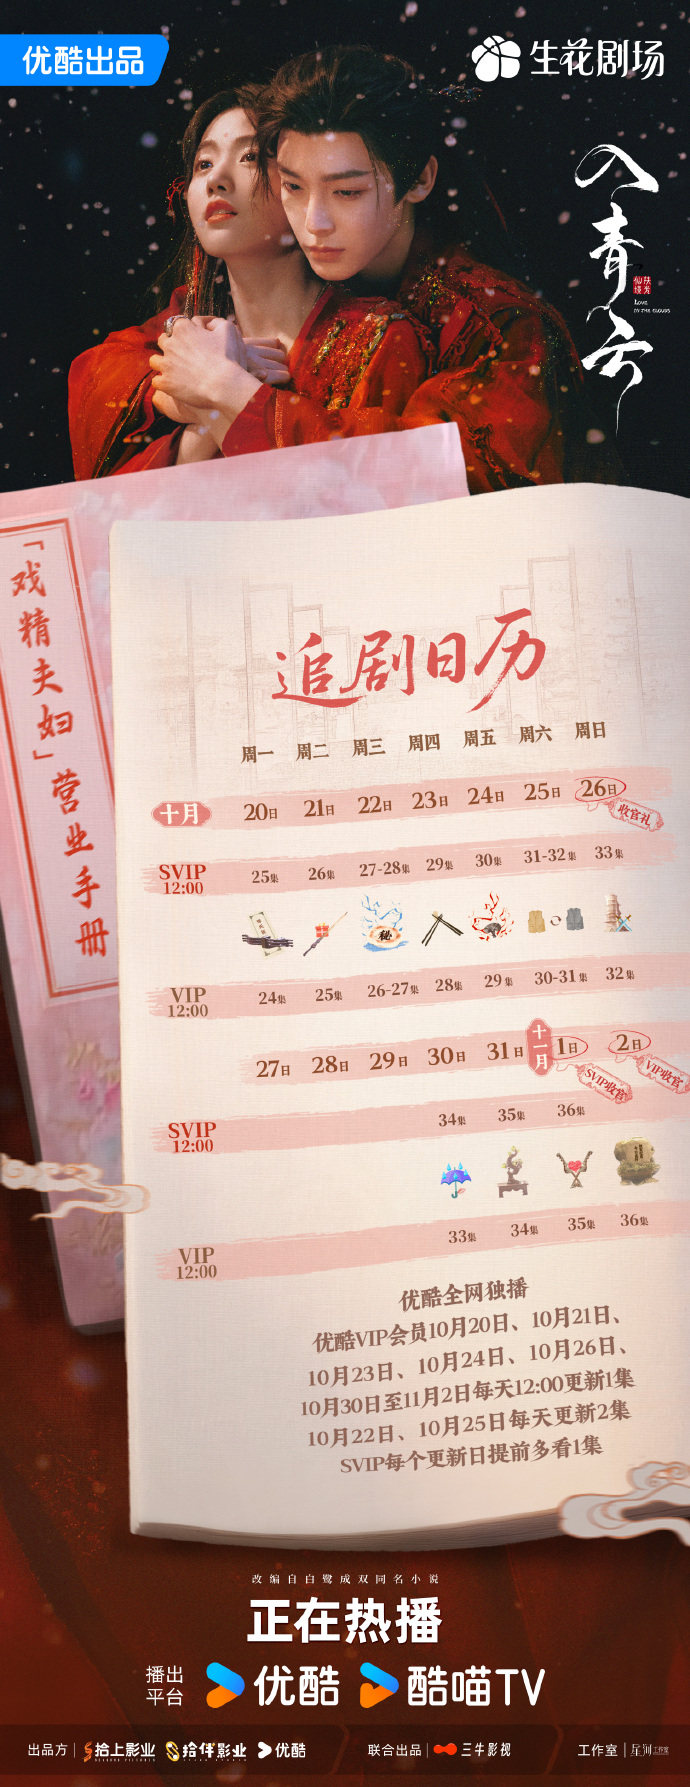 优酷出品
生花剧场
入青云
扶光仙境
LOVE
IN THE CLOUDS
「戏精夫妇」营业手册
追剧日历
周一 周二 周三 周四 周五 周六 周日
十月 20日 21日 22日 23日 24日 25日 26日
收官礼
SVIP 12:00 25集 26集 27-28集 29集 30集 31-32集 33集
秘
VIP 12:00 24集 25集 26-27集 28集 29集 30-31集 32集
27日 28日 29日 30日 31日 十一月 1日 2日
SVIP收官 VIP收官
SVIP 12:00 34集 35集 36集
VIP 12:00 33集 34集 35集 36集
优酷全网独播
优酷VIP会员10月20日、10月21日、
10月23日、10月24日、10月26日、
10月30日至11月2日每天12:00更新1集
10月22日、10月25日每天更新2集
SVIP每个更新日提前多看1集
改编自白鹭成双同名小说
正在热播
播出平台 优酷 酷喵TV
出品方 拾上影业 拾伴影业 优酷 联合出品 三牛影视 工作室 星河工作室